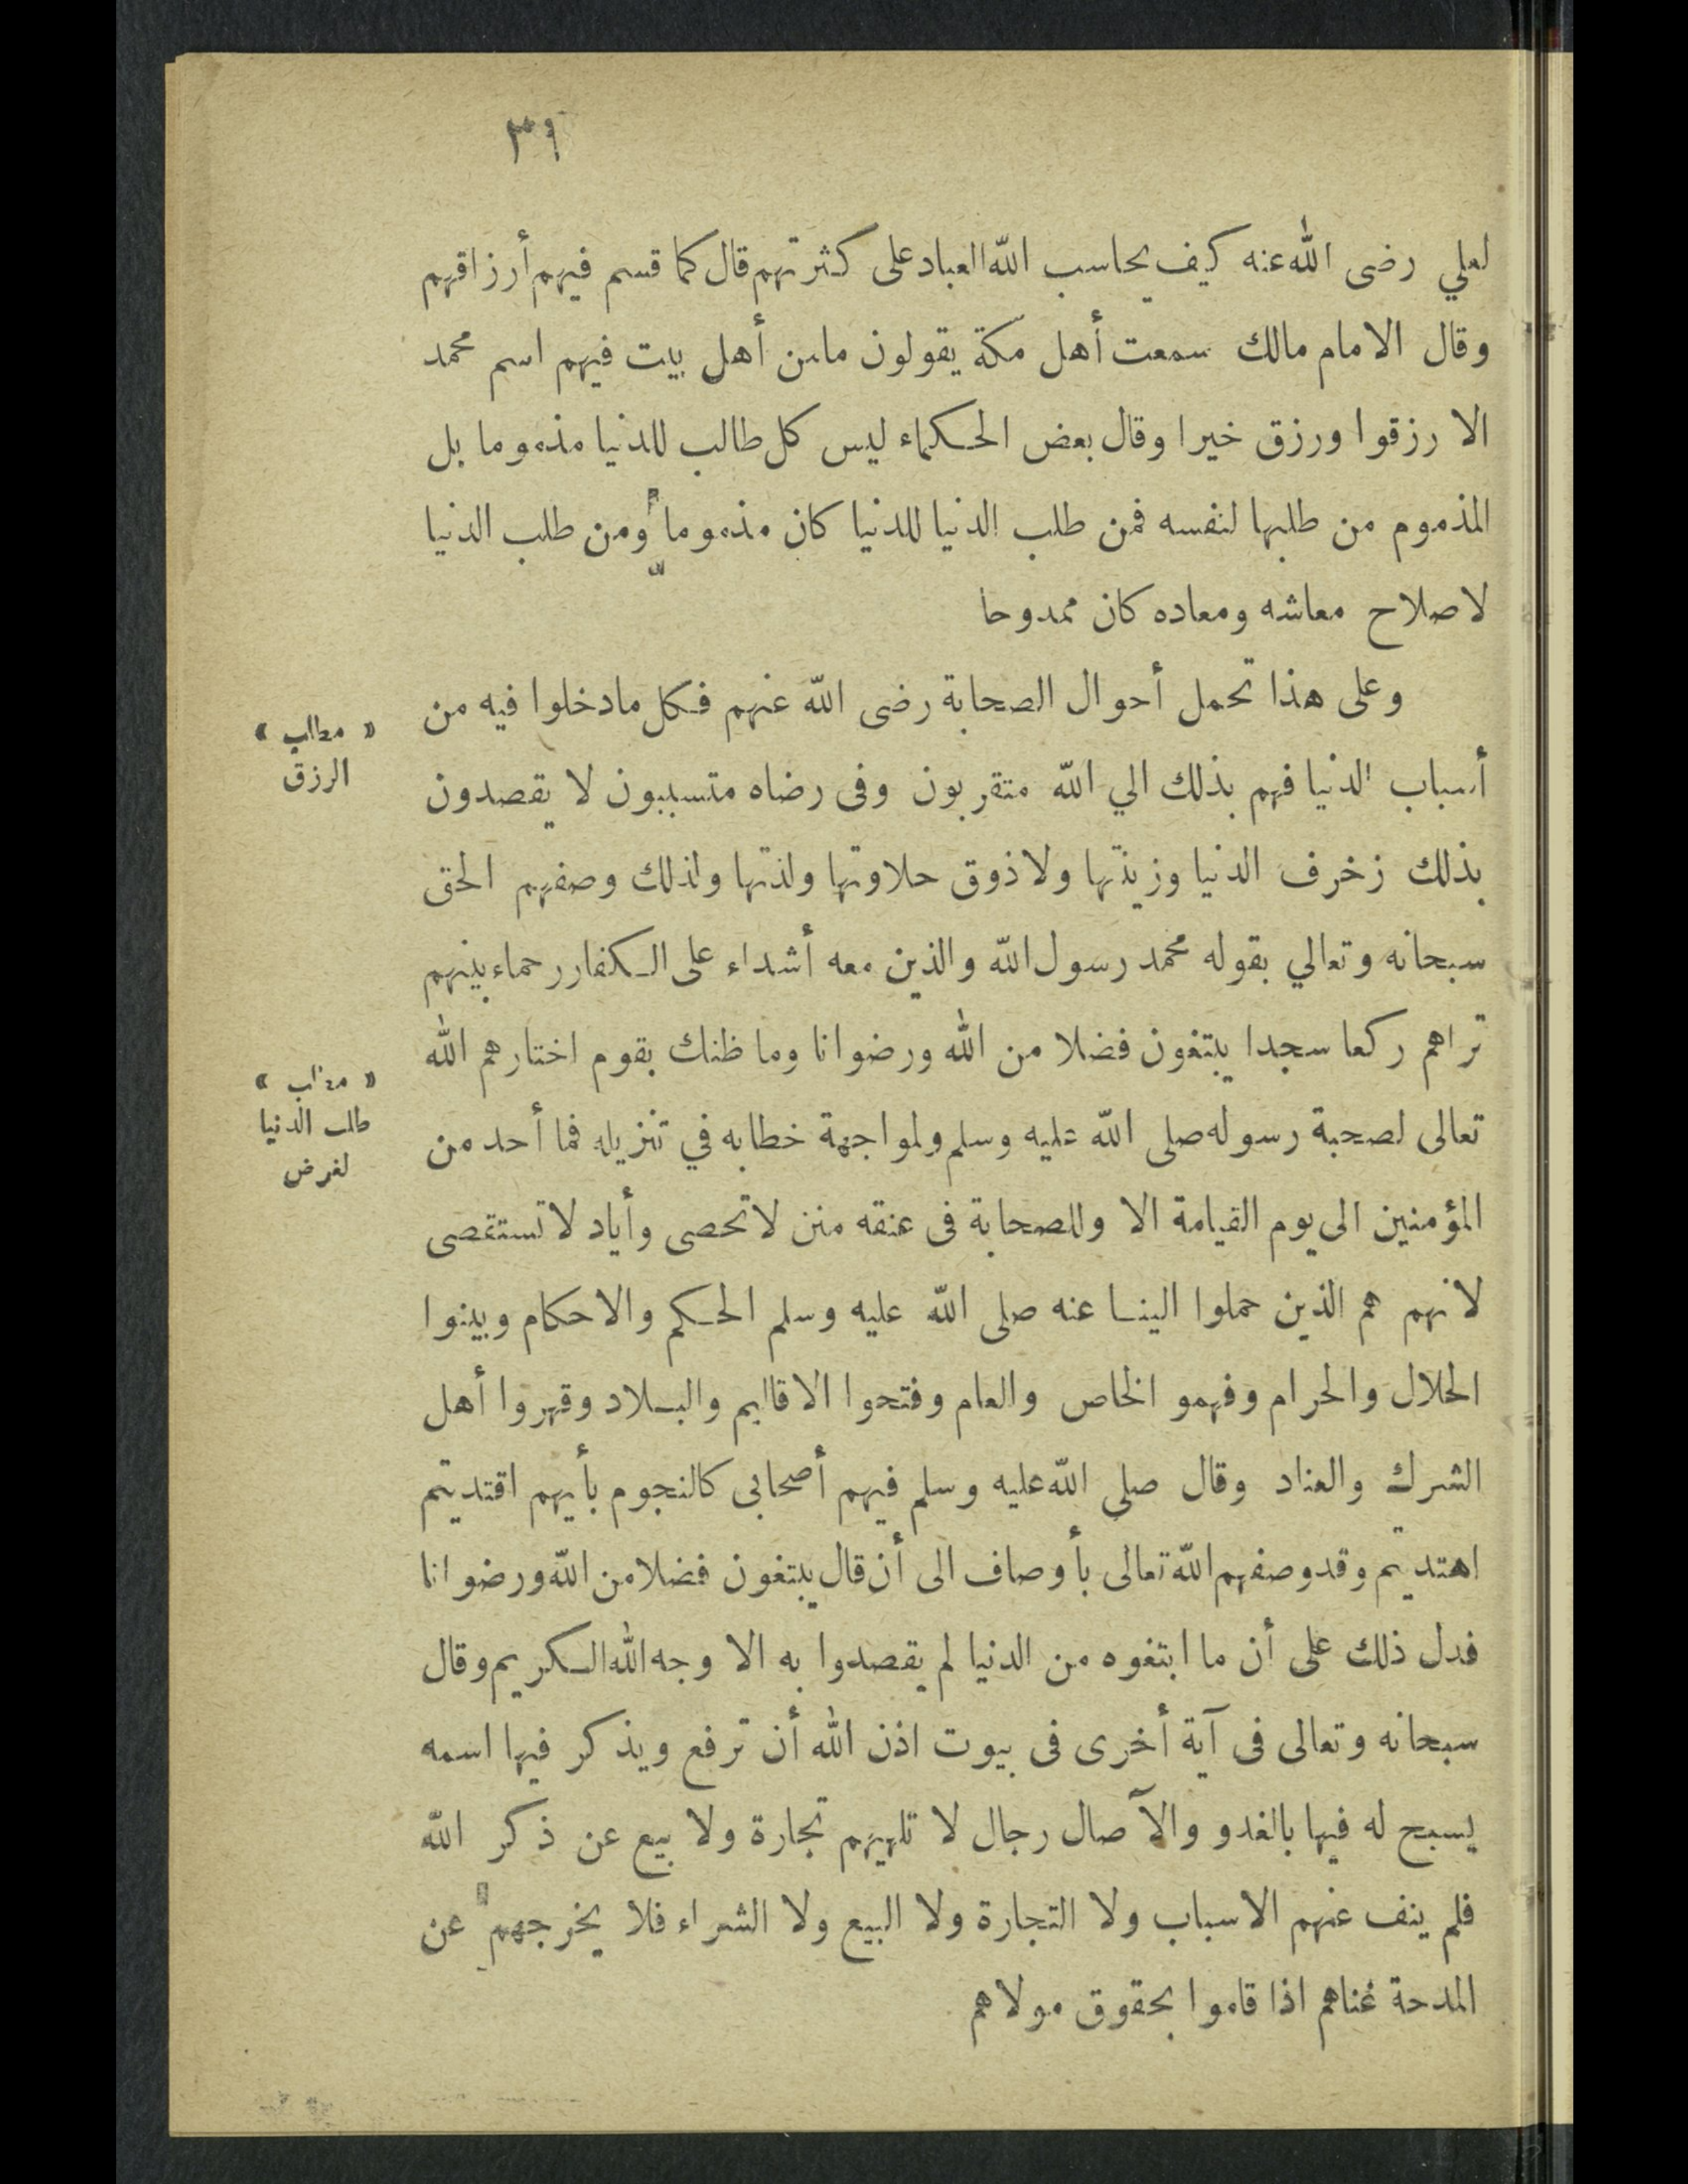 ٣٩
لعلي رضى الله عنه كيف يحاسب الله العباد على كثرتهم قال كما قسم فيهم أرزاقهم
وقال الامام مالك سمعت أهل مكة يقولون مامن أهل بيت فيهم اسم محمد
الا رزقوا ورزق خيرا وقال بعض الحكماء ليس كل طالب للدنيا مذموما بل
المذموم من طلبها لنفسه فمن طلب الدنيا للدنيا كان مذموما ومن طلب الدنيا
لاصلاح معاشه ومعاده كان ممدوحا
وعلى هذا تحمل أحوال الصحابة رضى الله عنهم فكل مادخلوا فيه من
« مطلب »
أسباب الدنيا فهم بذلك الي الله متقربون وفى رضاه متسببون لا يقصدون
الرزق
بذلك زخرف الدنيا وزينتها ولا ذوق حلاوتها ولذتها ولذلك وصفهم الحق
سبحانه وتعالي بقوله محمد رسول الله والذين معه أشداء على الكفار رحماء بينهم
تراهم ركعا سجدا يبتغون فضلا من الله ورضوانا وما ظنك بقوم اختارهم الله
« مطلب »
تعالى لصحبة رسوله صلى الله عليه وسلم ولمواجهة خطابه في تنزيله فما أحد من
طلب الدنيا
لغرض
المؤمنين الى يوم القيامة الا وللصحابة فى عنقه منن لا تحصى وأياد لا تستقصى
لانهم هم الذين حملوا الينا عنه صلى الله عليه وسلم الحكم والاحكام وبينوا
الحلال والحرام وفهمو الخاص والعام وفتحوا الاقاليم والبلاد وقهروا أهل
الشرك والعناد وقال صلى الله عليه وسلم فيهم أصحابى كالنجوم بأيهم اقتديتم
اهتديتم وقد وصفهم الله تعالى بأوصاف الى أن قال يبتغون فضلا من الله ورضوانا
فدل ذلك على أن ما ابتغوه من الدنيا لم يقصدوا به الا وجه الله الكريم وقال
سبحانه وتعالى فى آية أخرى فى بيوت اذن الله أن ترفع ويذكر فيها اسمه
يسبح له فيها بالغدو والآصال رجال لا تلهيهم تجارة ولا بيع عن ذكر الله
فلم ينف عنهم الاسباب ولا التجارة ولا البيع ولا الشراء فلا يخرجهم عن
المدحة غناهم اذا قاموا بحقوق مولاهم